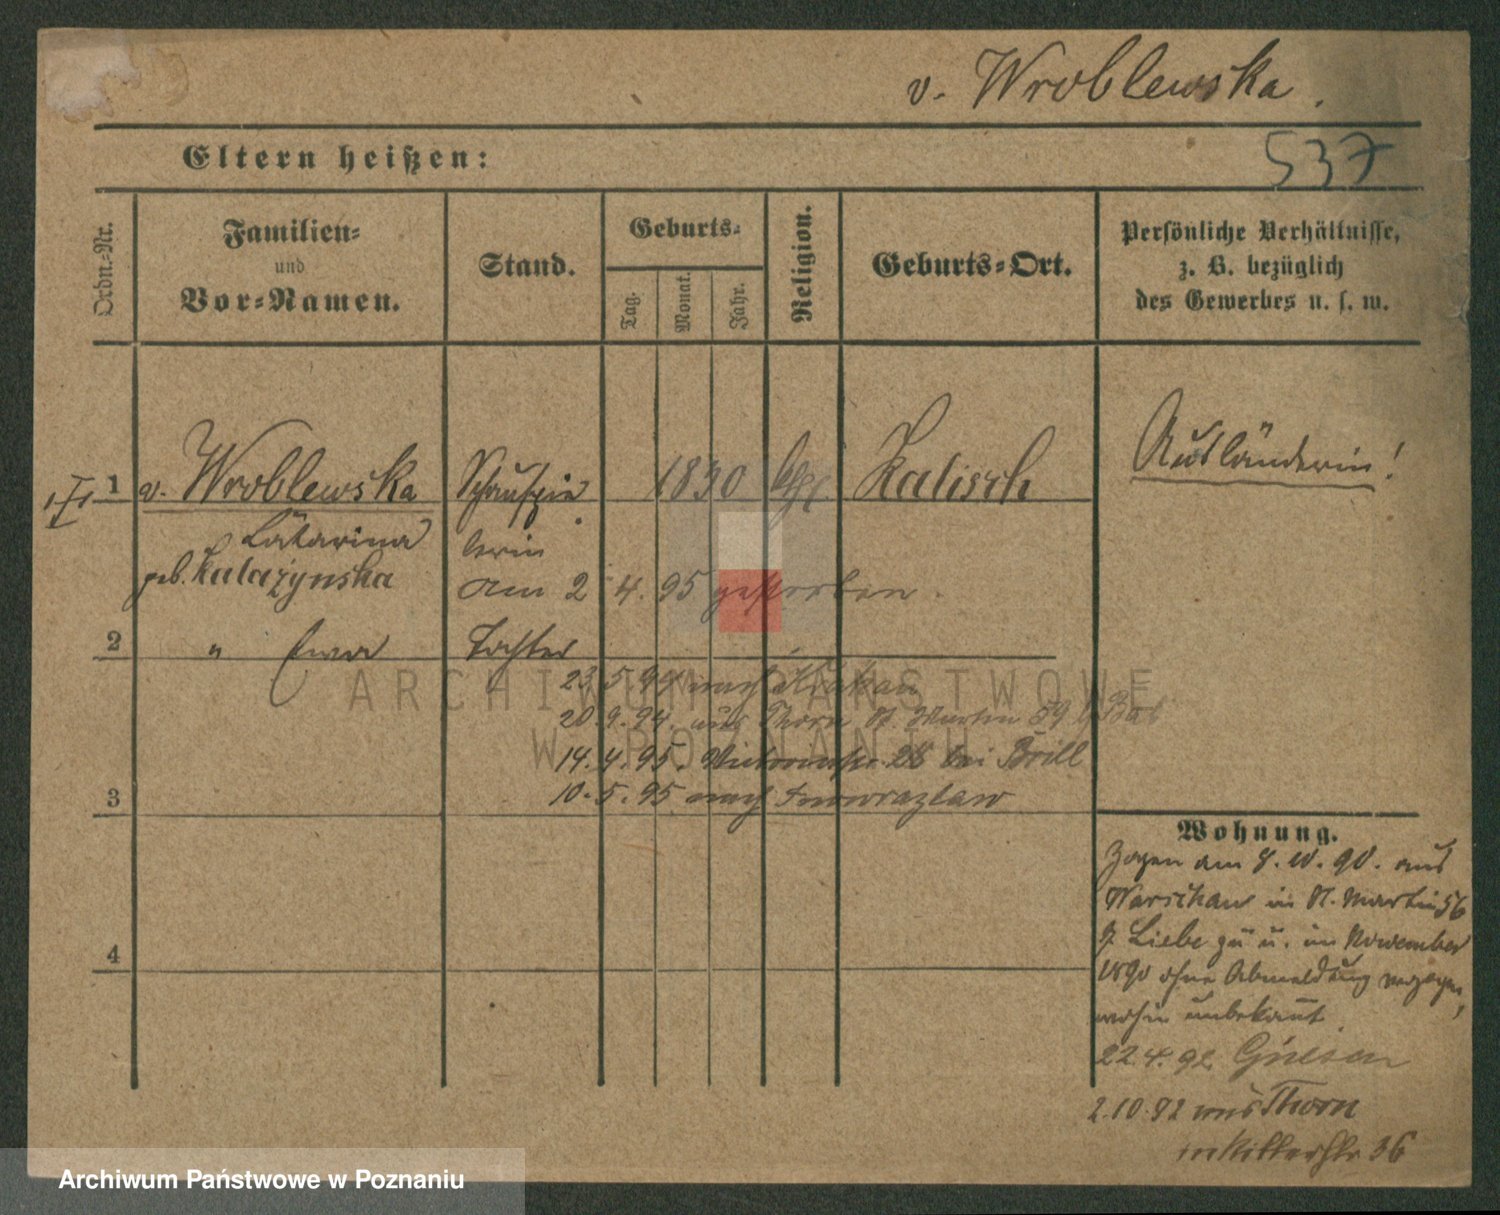 v. Wroblewska.
Eltern heißen:
537
Ordn.-Nr.
Familien-
und
Vor-Namen.
Stand.
Geburts-
Tag.
Monat.
Jahr.
Religion.
Geburts-Ort.
Persönliche Verhältnisse,
z. B. bezüglich
des Gewerbes u. s. w.
1 v. Wroblewska Schauspie 1830 Kalisch
Ausländerin!
Katarina lerin
geb. am 2 4. 95 gestorben.
2 " Ewa Tochter
23.5.94 nach Krakau
20.9.94. aus Thorn St. Martin 59
14.4.95. Victoriastr. 28 bei Brill
3 10.5.95 nach Inowrazlaw
Wohnung.
Zogen am 8.10.90. aus
Warschau in St. Martin 56
b. Liebe zu u. im November
1890 ohne Abmeldung verzogen,
wohin unbekannt.
4
22.4.92 Gnesen
2.10.92 aus Thorn
Ritterstr 36
ARCHIWUM PAŃSTWOWE
W POZNANIU
Archiwum Państwowe w Poznaniu